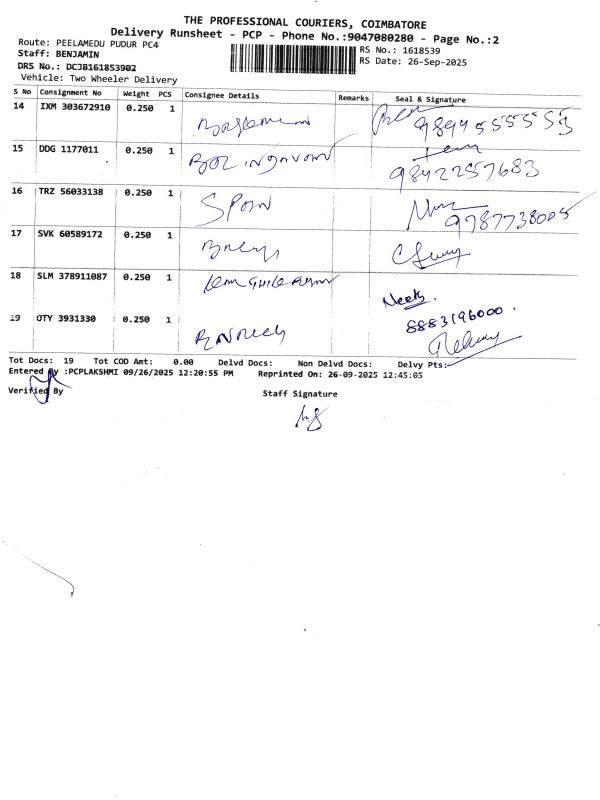 THE PROFESSIONAL COURIERS, COIMBATORE
Delivery Runsheet - PCP - Phone No.:9047080280 - Page No.:2
Route: PEELAMEDU PUDUR PC4
RS No.: 1618539
Staff: BENJAMIN
RS Date: 26-Sep-2025
DRS No.: DCJB161853902
Vehicle: Two Wheeler Delivery
S No Consignment No Weight PCS Consignee Details Remarks Seal & Signature
14 IXM 303672910 0.250 1
15 DDG 1177011 0.250 1
9842257683
16 TRZ 56033138 0.250 1 SPOIN
9787738005
17 SVK 60589172 0.250 1
18 SLM 378911087 0.250 1
Neeth.
8883196000.
19 OTY 3931330 0.250 1
Tot Docs: 19 Tot COD Amt: 0.00 Delvd Docs: Non Delvd Docs: Delvy Pts:
Entered By :PCPLAKSHMI 09/26/2025 12:20:55 PM Reprinted On: 26-09-2025 12:45:05
Verified By
Staff Signature